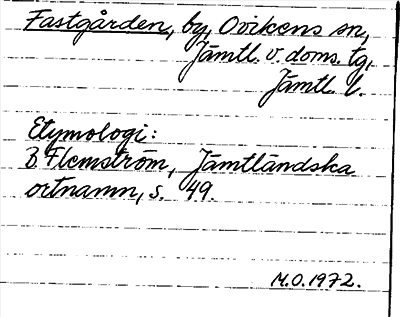 Fastgården, by, Ovikens sn,
Jämtl. v. doms. tg,
Jämtl. l.
Etymologi:
B Flemström, Jämtländska
ortnamn, s. 49.
M.O. 1972.